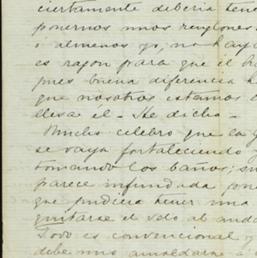 ciertamente debería tene
ponernos unos renglones
o almenos yo, no hay
es razon para que el
pues buena diferencia h
que nosotros estamos
desea el - He dicho -
Mucho celebro que la
se vaya fortaleciendo
tomando los baños; su
parece infundada, por
que pudiera tener una
quitarse el velo al
Todo es convencional y
debe uno amoldarse á